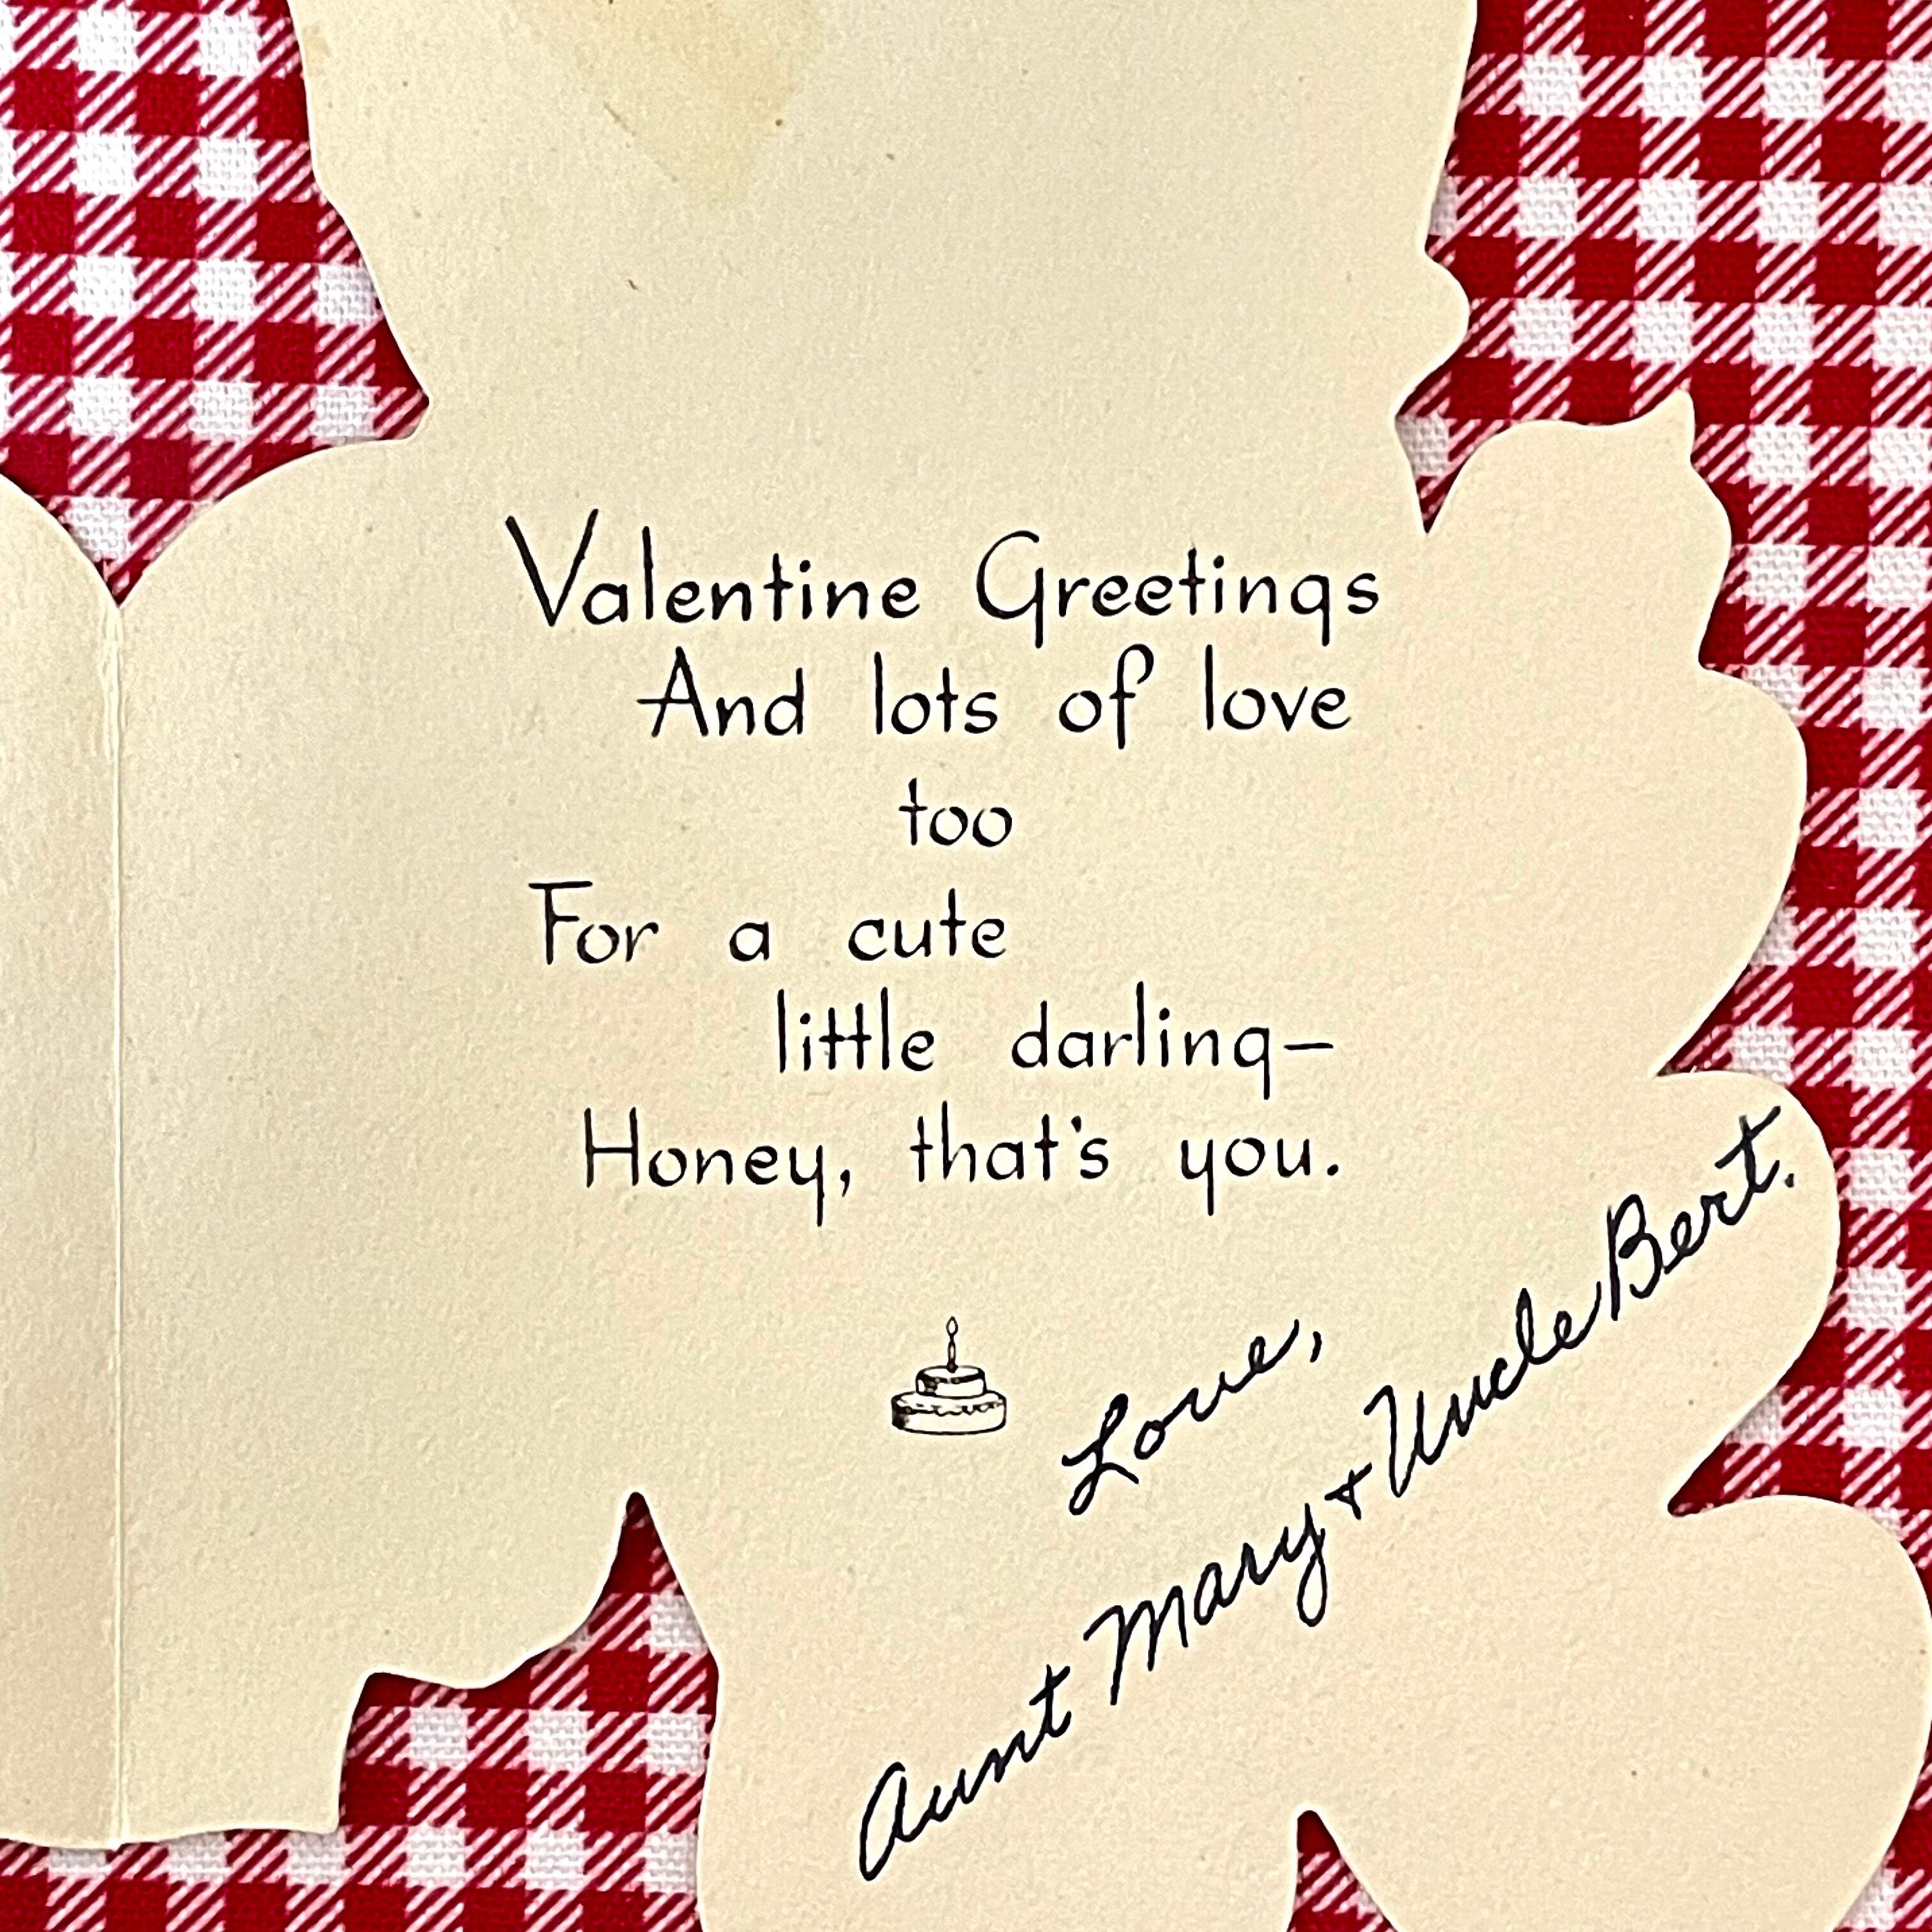 Valentine Greetings
And lots of love
too
For a cute
little darling—
Honey, that's you.
Love,
Aunt Mary + Uncle Bert.